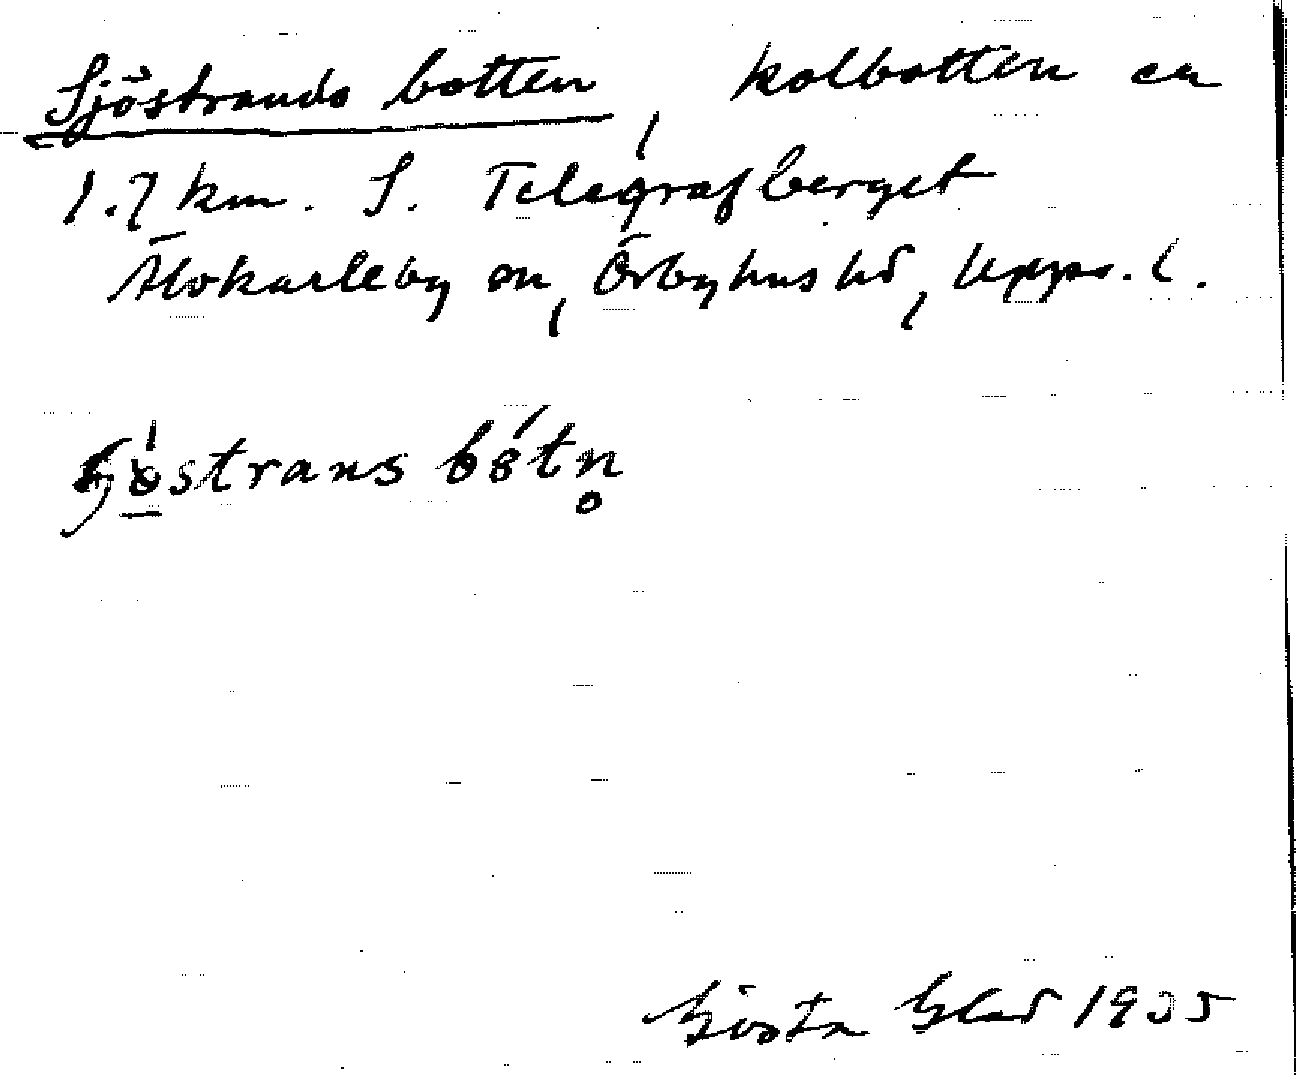 Sjöstrands botten, kolbotten ca
1.7 km. S. Telegrafberget
Älvkarleby sn, Örbyhus hd, Upps. l.
Gösta Blad 1935